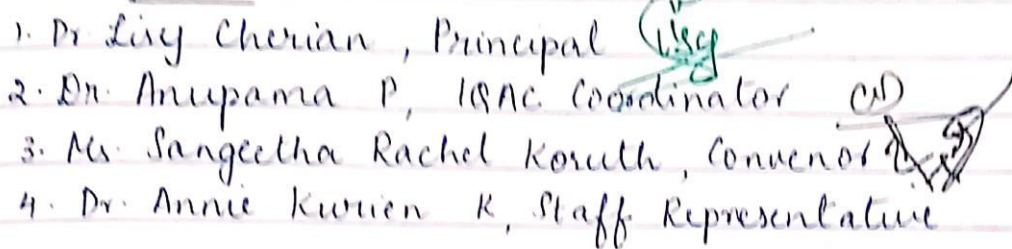 1. Dr Lisy Cherian, Principal Lisy
2. Dr. Anupama P, IQAC Coordinator
3. Ms. Sangeetha Rachel Koruth, Convenor
4. Dr. Annie Kurien K, Staff Representative